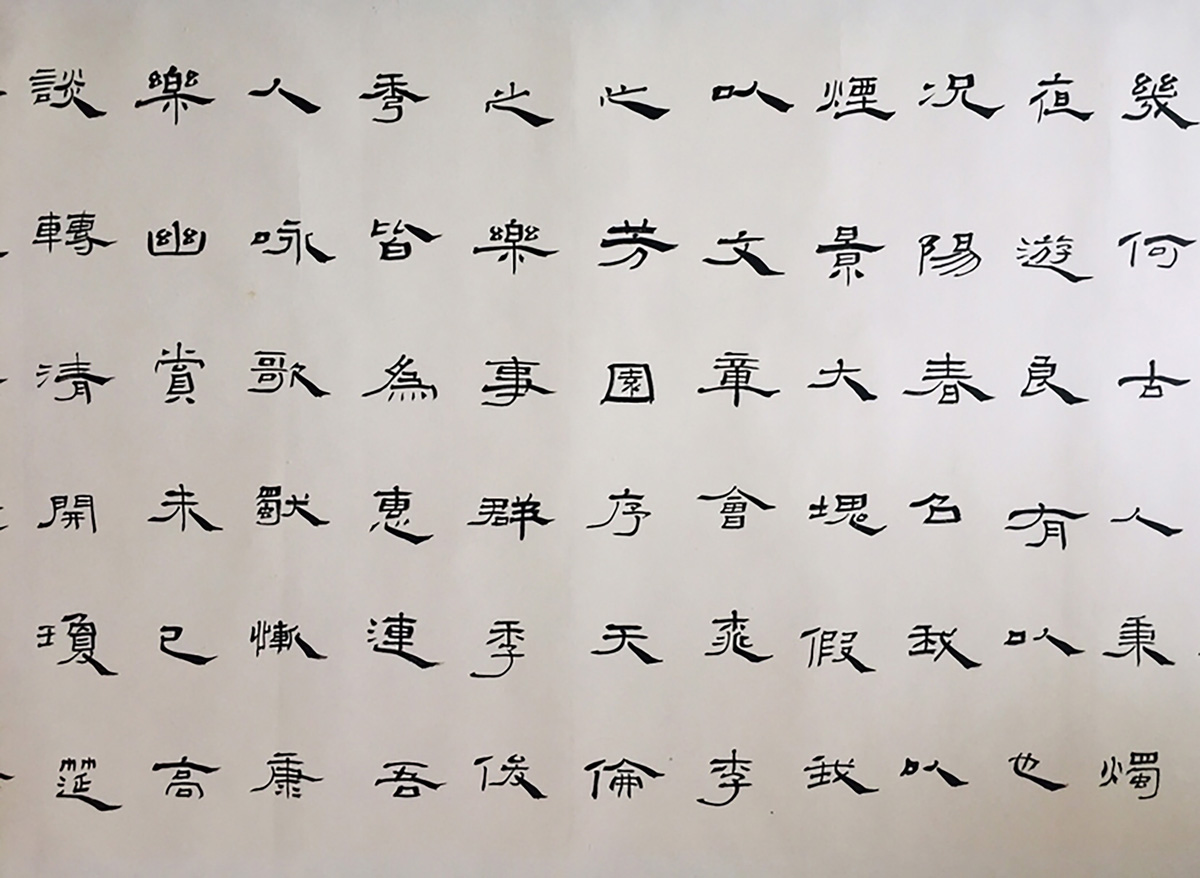 幾何古人秉燭
夜遊良有以也
况陽春召我以
煙景大塊假我
以文章會桃李
之芳園序天倫
之樂事群季俊
秀皆為惠連吾
人咏歌獨慚康
樂幽賞未已高
談轉清開瓊筵